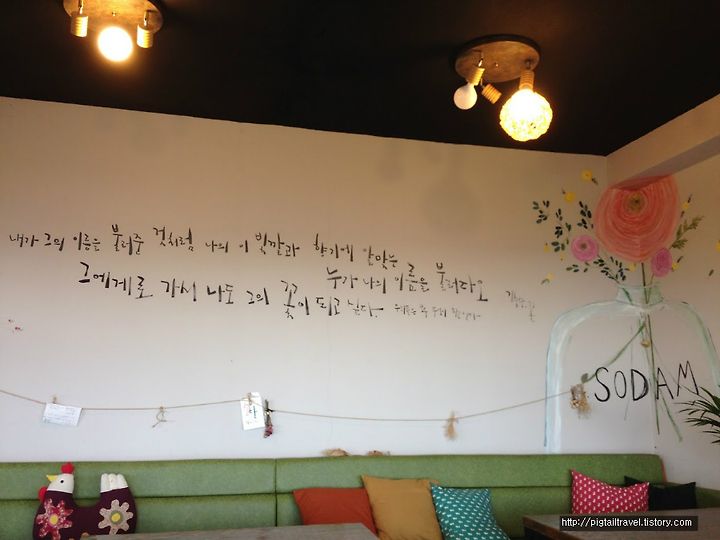 내가 그의 이름을 불러준 것처럼 나의 이 빛깔과 향기에 알맞는
누가 나의 이름을 불러다오
그에게로 가서 나도 그의 꽃이 되고 싶다.
김춘수, 꽃
SODAM
http://pigtailtravel.tistory.com